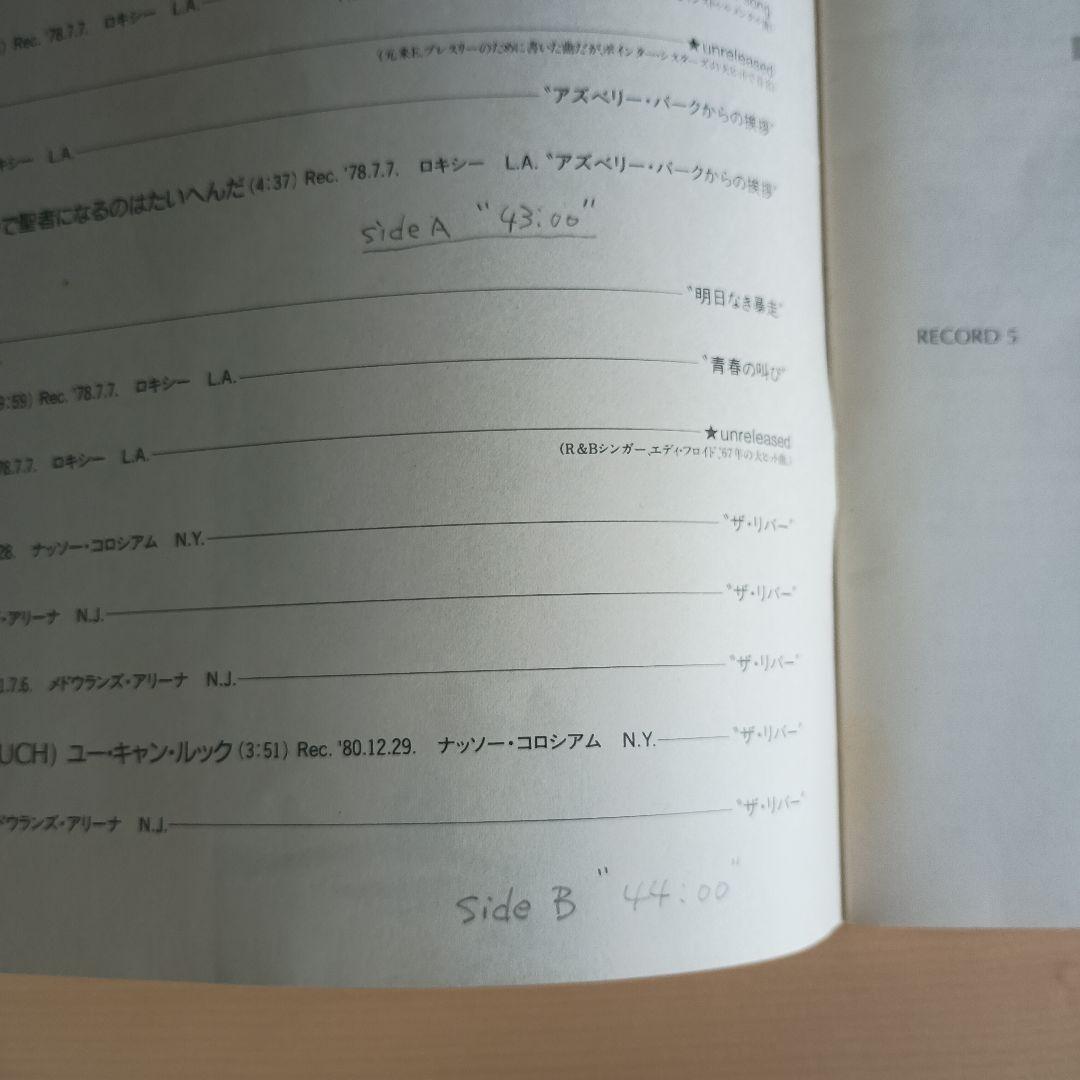 ) Rec. '78.7.7. ロキシー L.A.
★unreleased
(元来E.プレスリーのために書いた曲だが、ポインター・シスターズの
L.A. "アズベリー・パークからの挨拶"
で聖者になるのはたいへんだ (4:37) Rec. '78.7.7. ロキシー L.A. "アズベリー・パークからの挨拶"
side A "43:00"
"明日なき暴走"
:59) Rec. '78.7.7. ロキシー L.A. "青春の叫び"
78.7.7. ロキシー L.A. ★unreleased
(R&Bシンガー、エディ・フロイド、'67年の大ヒット曲。)
28. ナッソー・コロシアム N.Y. "ザ・リバー"
・アリーナ N.J. "ザ・リバー"
1.7.6. メドウランズ・アリーナ N.J. "ザ・リバー"
UCH) ユー・キャン・ルック (3:51) Rec. '80.12.29. ナッソー・コロシアム N.Y. "ザ・リバー"
ドウランズ・アリーナ N.J. "ザ・リバー"
side B "44:00"
RECORD 5